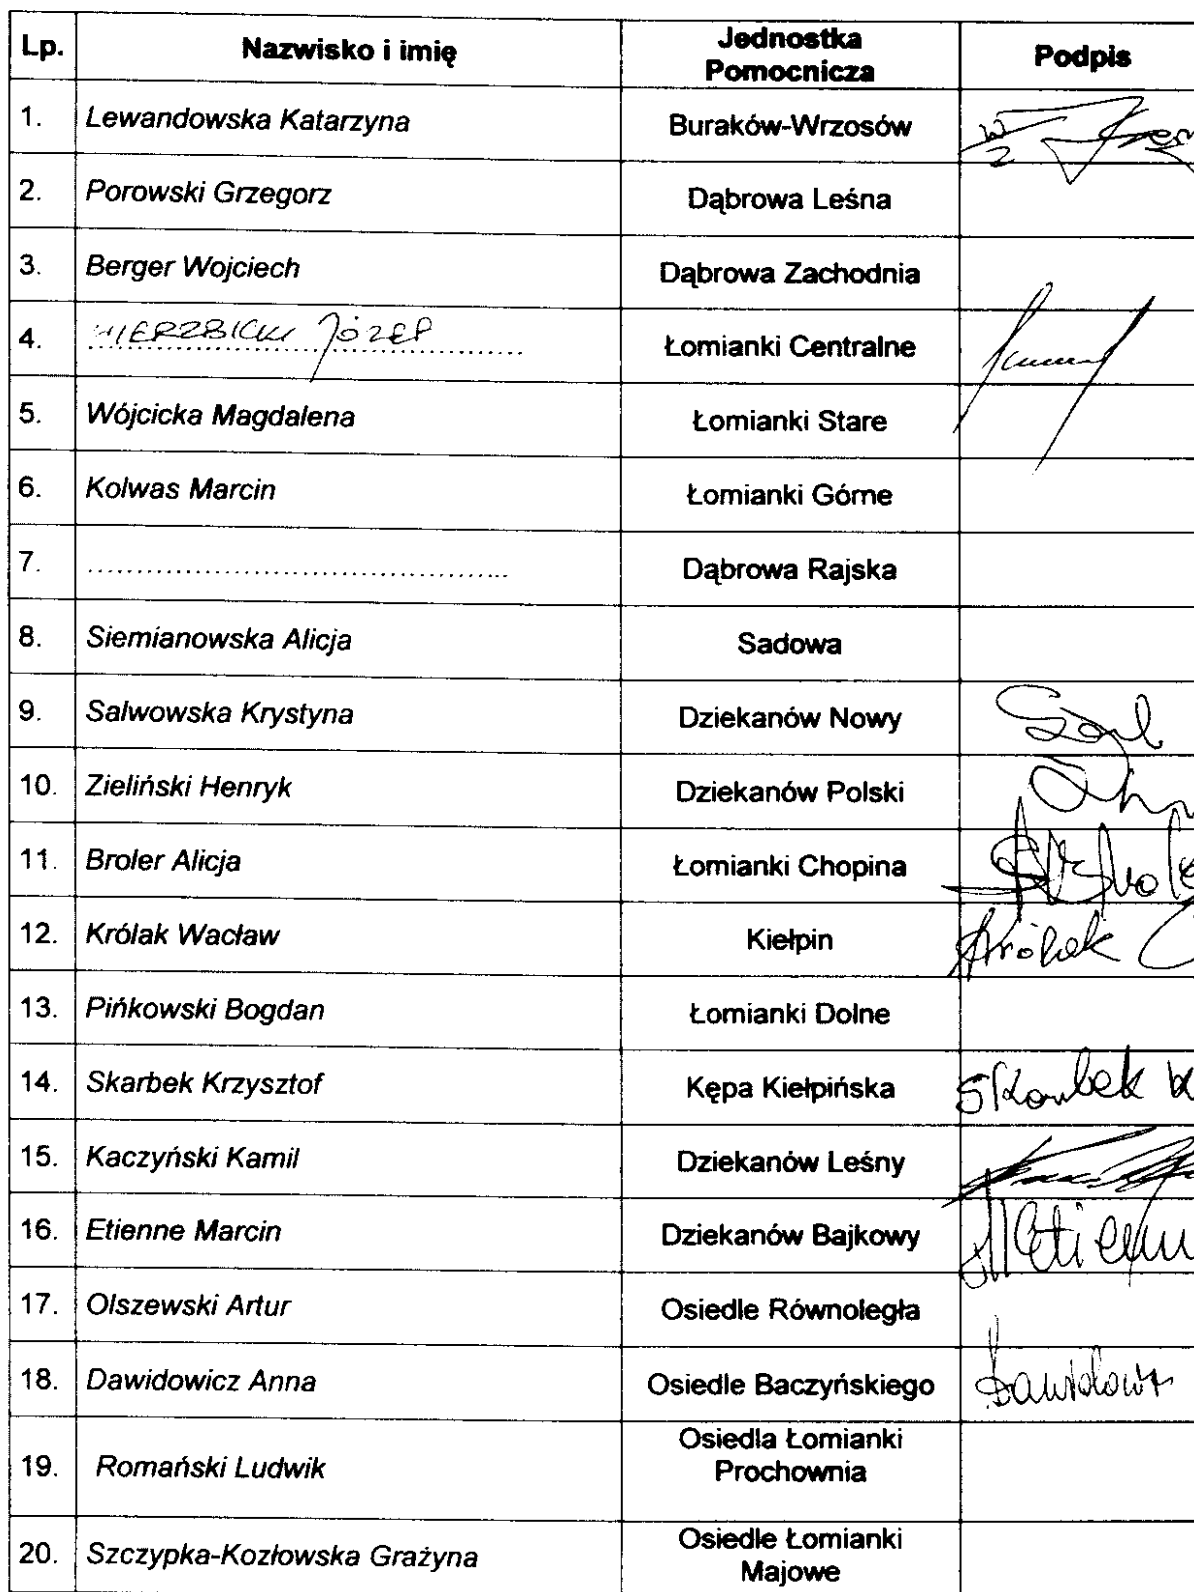 Lp. Nazwisko i imię Jednostka Pomocnicza Podpis
1. Lewandowska Katarzyna Buraków-Wrzosów
2. Porowski Grzegorz Dąbrowa Leśna
3. Berger Wojciech Dąbrowa Zachodnia
4. WIERZBICKI JÓZEF Łomianki Centralne
5. Wójcicka Magdalena Łomianki Stare
6. Kolwas Marcin Łomianki Górne
7. .......................................... Dąbrowa Rajska
8. Siemianowska Alicja Sadowa
9. Salwowska Krystyna Dziekanów Nowy
10. Zieliński Henryk Dziekanów Polski
11. Broler Alicja Łomianki Chopina
12. Królak Wacław Kiełpin Królak
13. Pińkowski Bogdan Łomianki Dolne
14. Skarbek Krzysztof Kępa Kiełpińska Skarbek K
15. Kaczyński Kamil Dziekanów Leśny
16. Etienne Marcin Dziekanów Bajkowy
17. Olszewski Artur Osiedle Równoległa
18. Dawidowicz Anna Osiedle Baczyńskiego
19. Romański Ludwik Osiedla Łomianki Prochownia
20. Szczypka-Kozłowska Grażyna Osiedle Łomianki Majowe